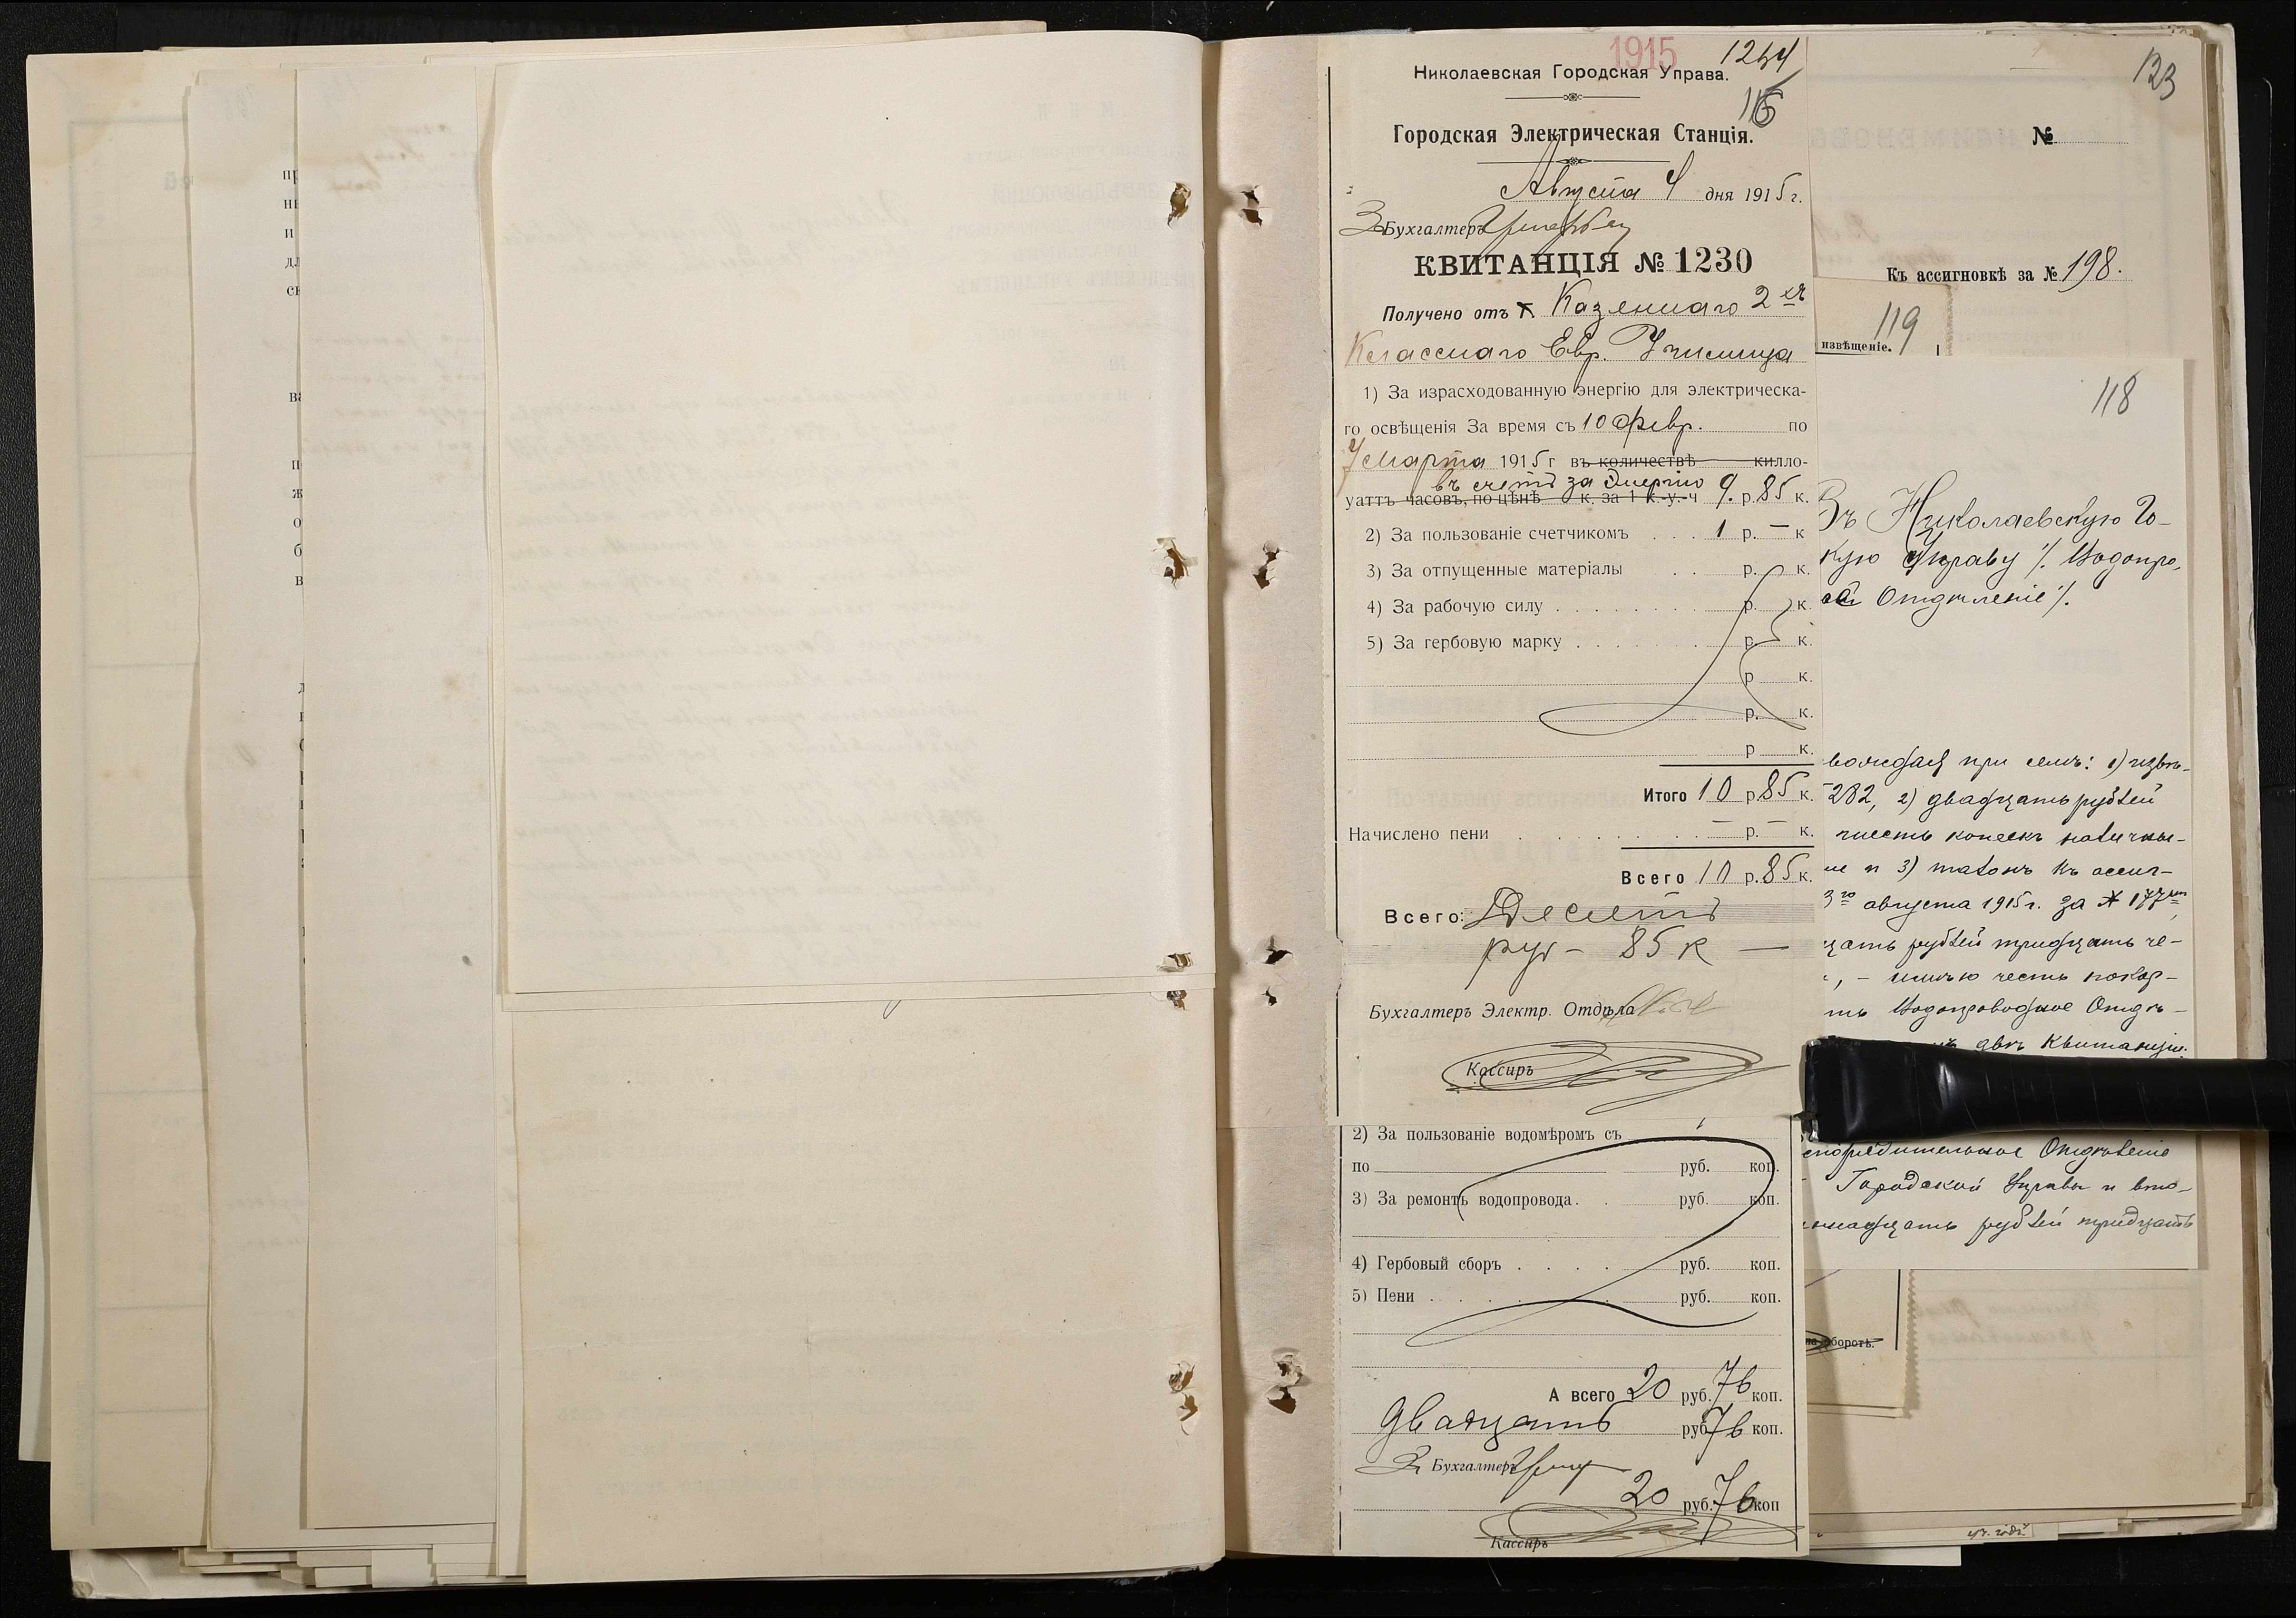 1915
1244
Николаевская Городская Управа.
116
Городская Электрическая Станція.
Августа 4 дня 1915 г.
За Бухгалтеръ
КВИТАНЦІЯ № 1230
Получено отъ Г. Казеннаго 2 хъ
Классмаго Евр. Училища
1) За израсходованную энергію для электрическа-
го освѣщенія За время съ 10 февр. по
7 марта 1915 г въ количествѣ килло-
въ счетъ за Энергію
уаттъ часовъ, по цѣнѣ к. за 1 к.-у.-ч 9. р. 85 к.
2) За пользованіе счетчикомъ . . . 1 р. — к
3) За отпущенные матеріалы . . р. к.
4) За рабочую силу . . . . . . . р. к.
5) За гербовую марку . . . . . . . р. к.
р к.
р. к.
р к.
Итого 10 р. 85 к.
Начислено пени . . . . . . . — р. — к.
Всего 10 р. 85 к.
Всего: Десять
руб — 85 к —
Бухгалтеръ Электр. Отдѣла
Кассиръ
2) За пользованіе водомѣромъ съ
по руб. коп.
3) За ремонтъ водопровода. . руб. коп.
4) Гербовый сборъ . . . . руб. коп.
5) Пени . . . . . . руб. коп.
А всего 20 руб. 76 коп.
двадцать руб 76 коп.
За Бухгалтеръ
20 руб. 76 коп
Кассиръ
123
№
Къ ассигновкѣ за № 198.
119
извѣщеніе.
118
Въ Николаевскую Го-
кую Управу /. Водопро-
Отдѣленіе /.
вождая при семъ: 1) извѣ-
282, 2) двадцать рублей
шесть копеекъ наличны-
и 3) талонъ къ ассиг-
3го августа 1915 г. за № 177
цать рублей тридцать че-
, — имѣю честь покор-
Водопроводное Отдѣ-
двѣ квитанціи:
Отдѣленіе
Городской Управы и вто-
рублей тридцать
оборотѣ.